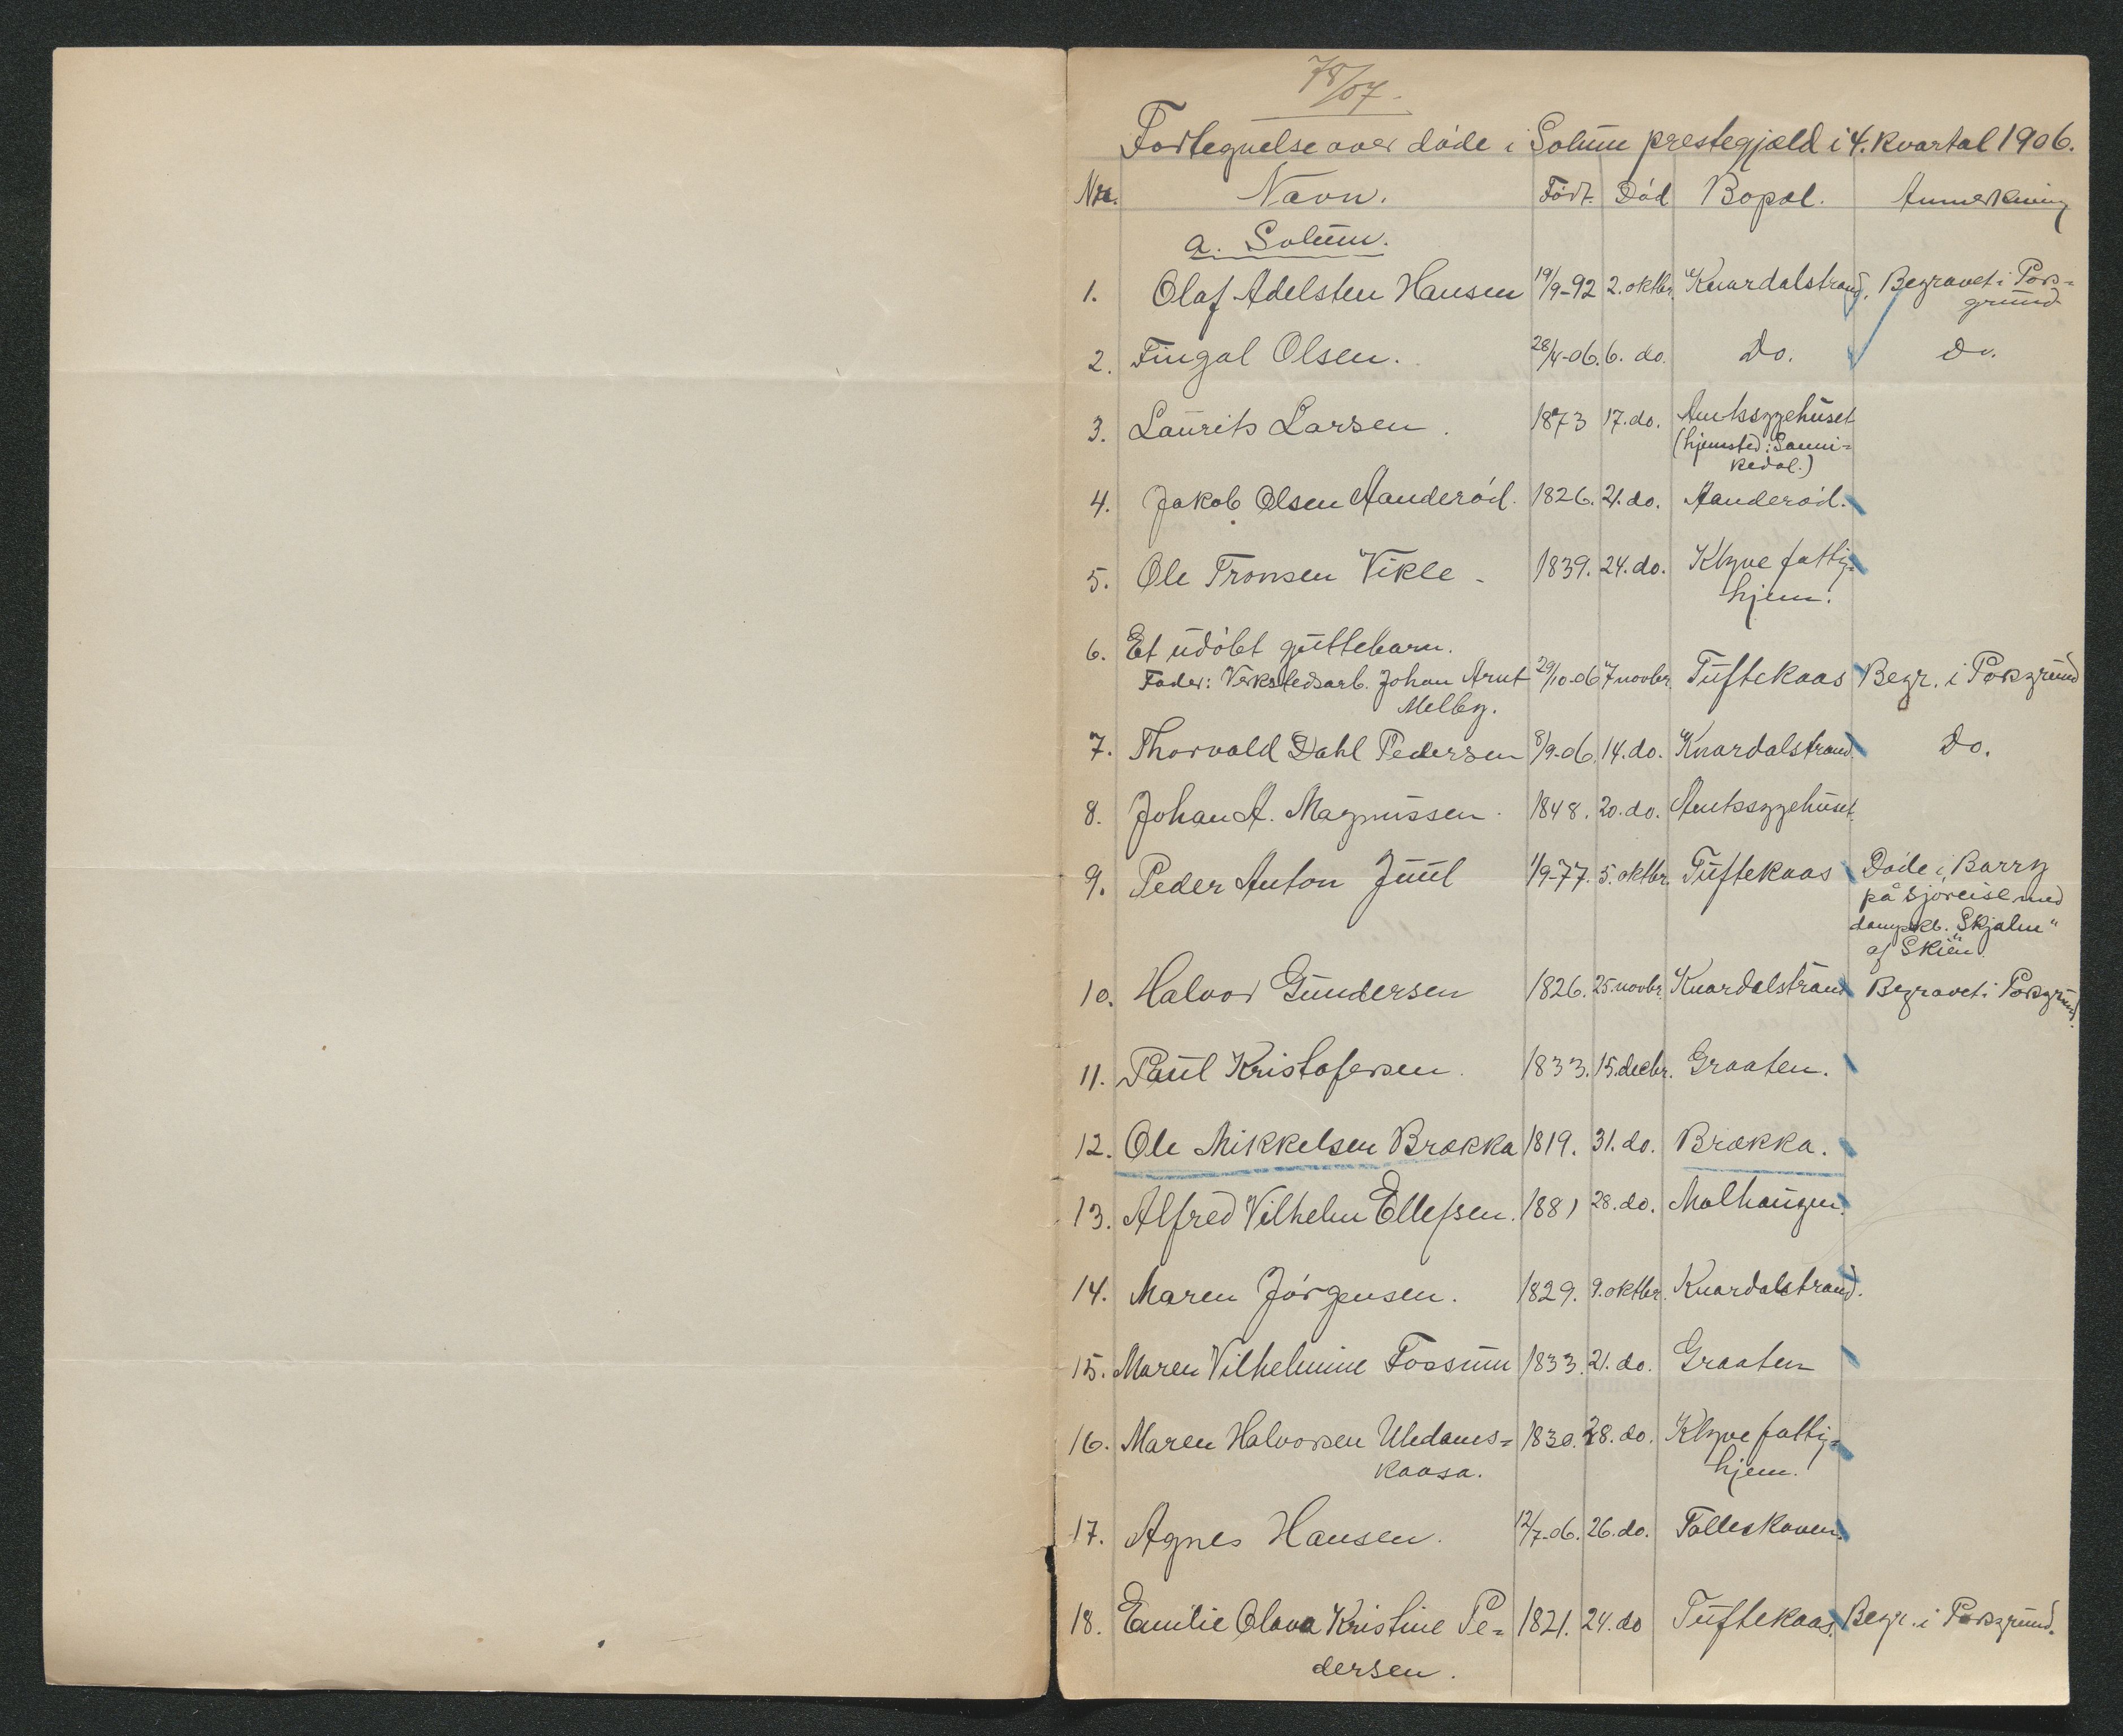 78/07.
Fortegnelse over døde i Solum prestegjæld i 4. kvartal 1906.
Nro. Navn. Født. Død Bopæl. Anmerkning
a. Solum.
1. Olaf Adelsten Hansen 19/9-92 2. oktbr. Knardalstrand. Begravet i Pors=
grund
2. Fingal Olsen. 28/4-06. 6. do. Do. Do.
3. Laurits Larsen. 1873 17. do. Amtssygehuset
(hjemsted: Sanni=
kedal.)
4. Jakob Olsen Aanderød. 1826. 21. do. Aanderød.
5. Ole Tronsen Vikle 1839. 24. do. Klyve fattig=
hjem.
6. Et udøbt guttebarn.
Fader: Verkstedsarb. Johan Arnt 29/10-06 7 novbr. Tuftekaas Begr. i Porsgrund
Melby.
7. Thorvald Dahl Pedersen 8/9-06. 14. do. Knardalstrand. Do.
8. Johan A. Magnussen. 1848. 20. do. Amtssygehuset.
9. Peder Anton Juul 1/9-77. 5. oktbr. Tuftekaas Døde i Barry
på sjøreise med
dampsk. "Skjalm"
af Skien.
10. Halvor Gundersen 1826. 25. novbr. Knardalstrand Begravet i Porsgrund.
11. Paul Kristofersen. 1833. 15. decbr. Graaten.
12. Ole Mikkelsen Brækka 1819. 31. do. Brækka.
13. Alfred Vilhelm Ellefsen. 1881 28. do. Mælhaugen.
14. Maren Jørgensen. 1829. 9. oktbr. Knardalstrand.
15. Maren Vilhelmine Fossum 1833. 21. do. Graaten
16. Maren Halvorsen 1830. 28. do. Klyve fattig=
kaasa. hjem.
17. Agnes Hansen. 12/7-06. 26. do. Tolleskoven.
18. Emilie Olava Kristine Pe= 1821. 24. do Tuftekaas. Begr. i Porsgrund.
dersen.